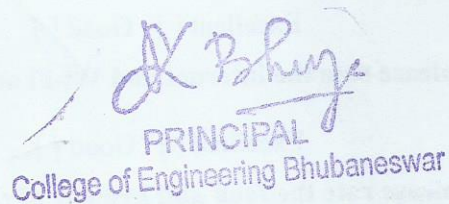 PRINCIPAL
College of Engineering Bhubaneswar